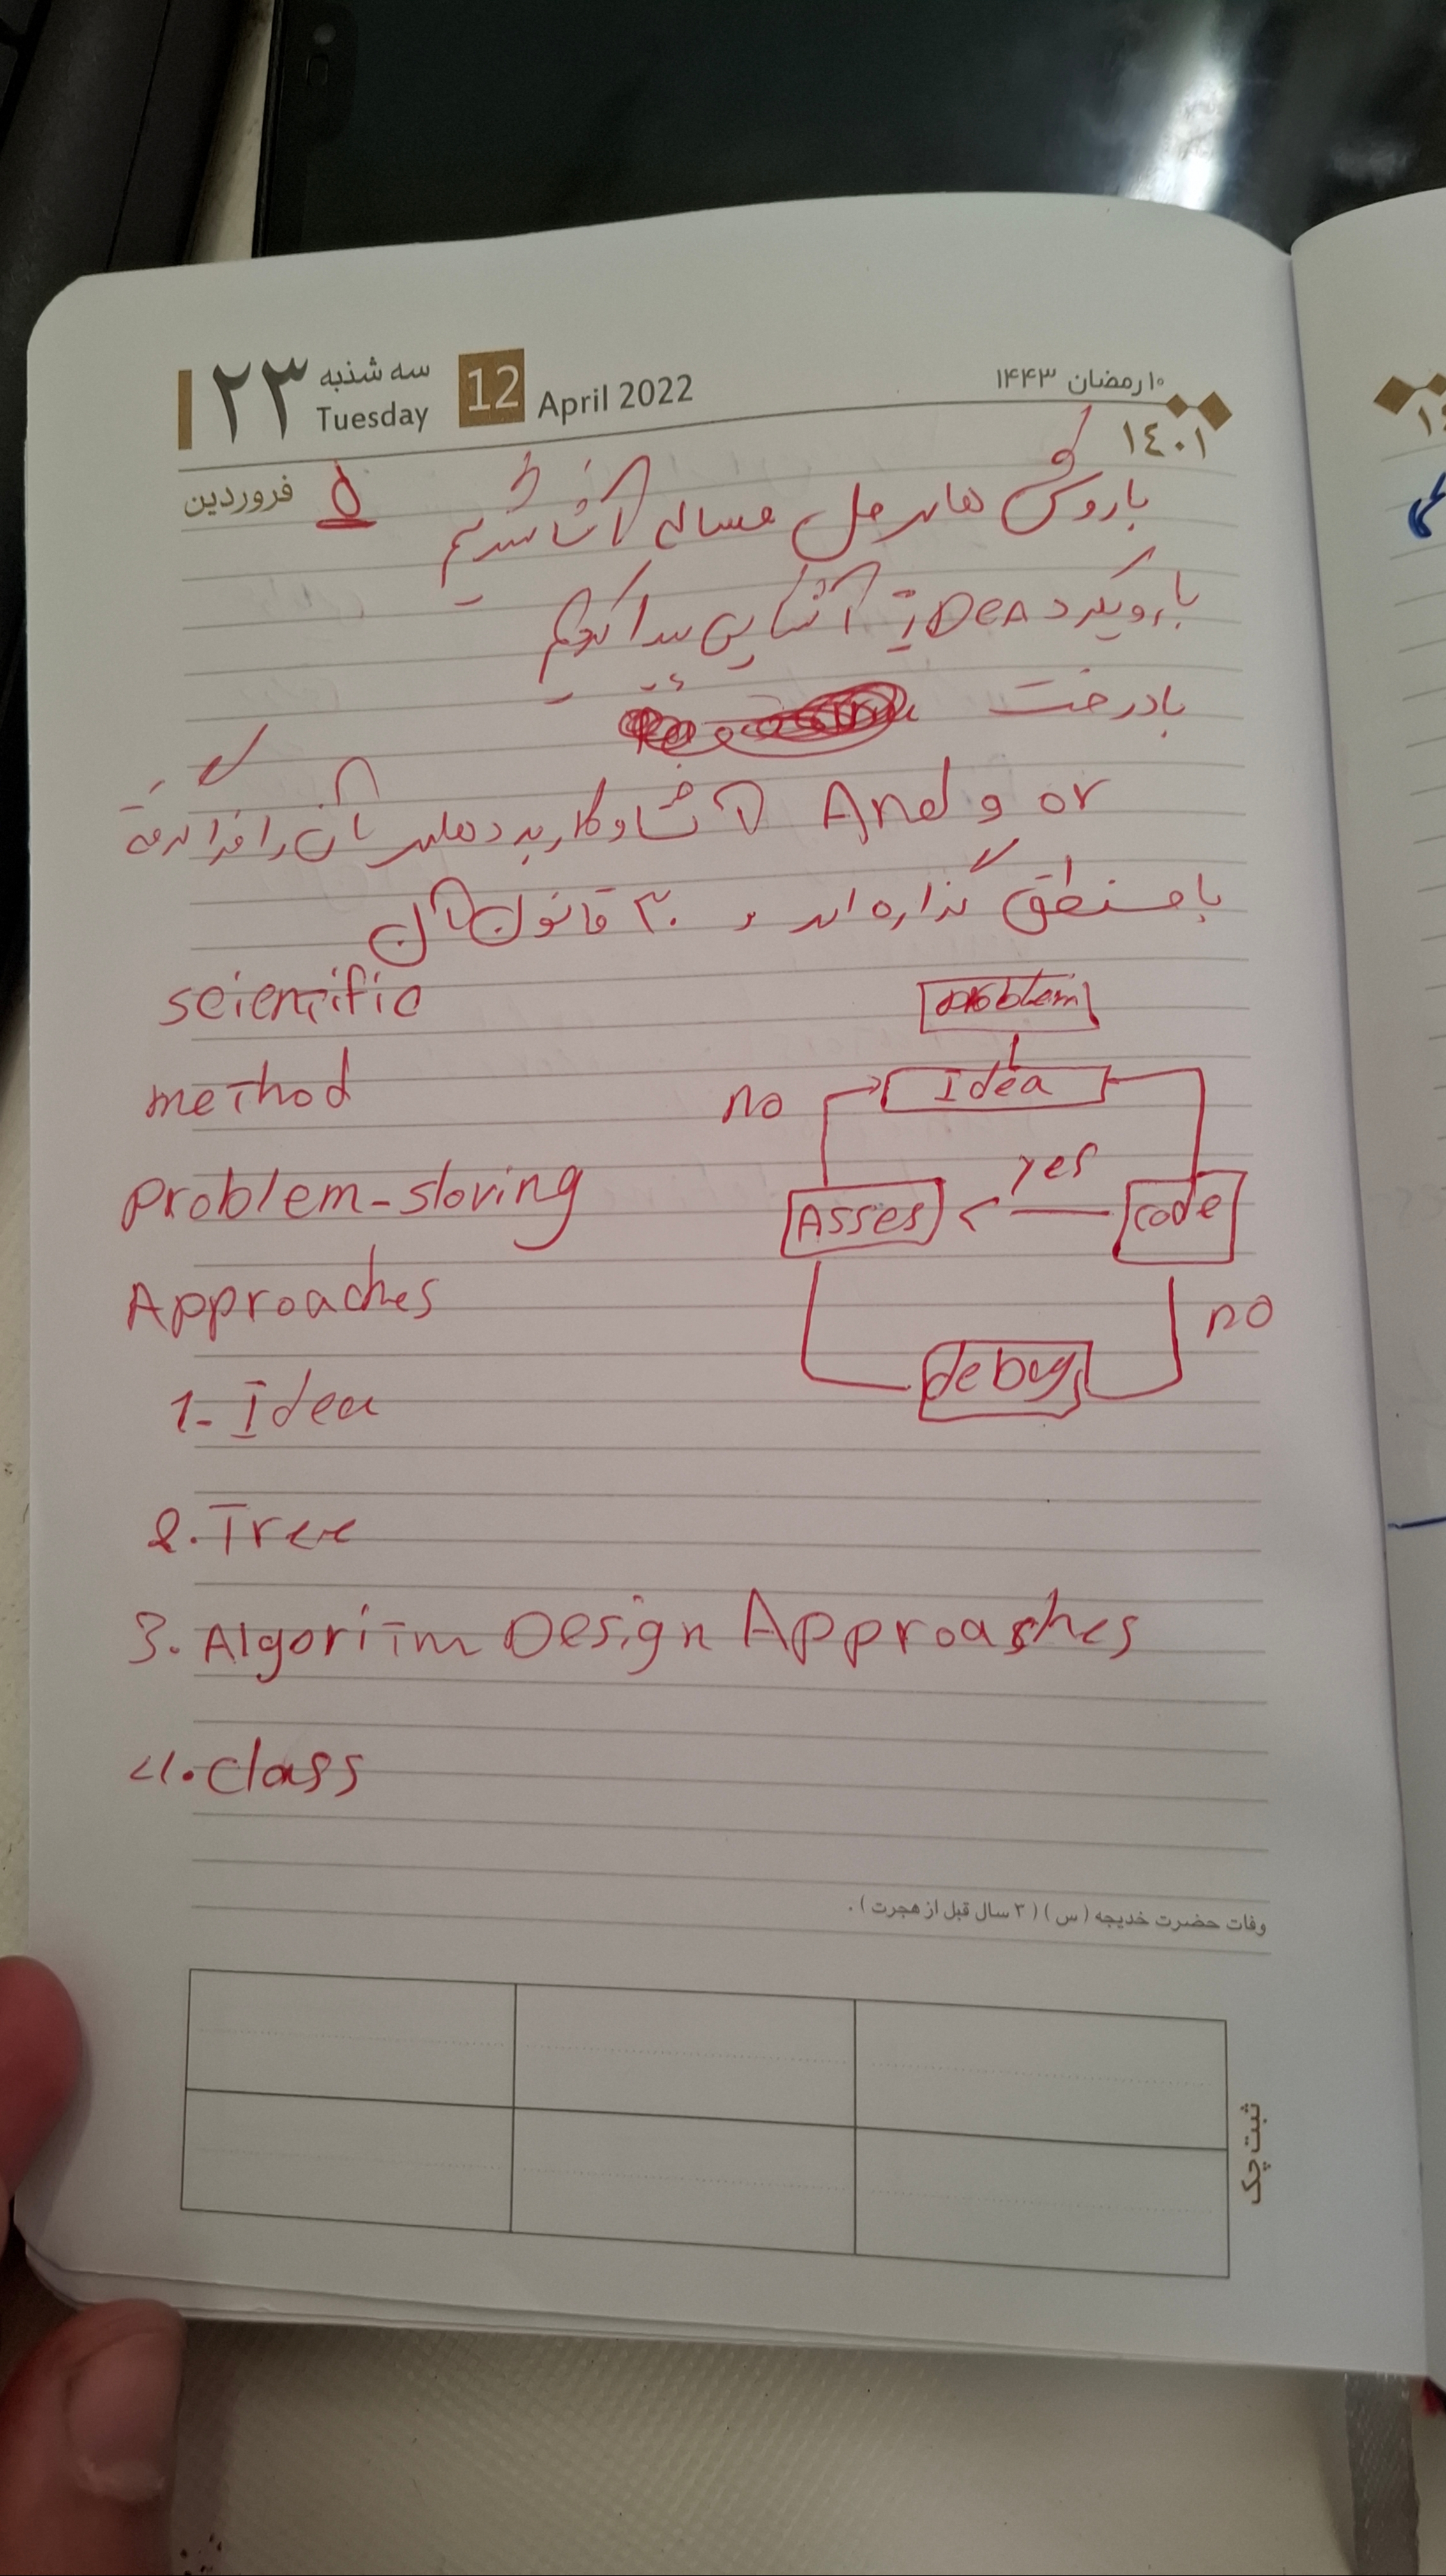 ۲۳ سه شنبه Tuesday 12 April 2022 ۱۰ رمضان ۱۴۴۳
۱٤۰۱
فروردین ۵
با روش های حل مساله آشنا شدیم
با رویکرد IDEA آشنایی پیدا کردیم
با درخت
or و And آشنا و کاربرد های آن را فرا گرفته
با منطق گذاره ای و ۲۰ قانون آن
scientific
method
problem-sloving
Approaches
1- Idea
2. Tree
3. Algoritm Design Approaches
4. class
problem
Idea
no
yes
Asses
code
no
debug
وفات حضرت خدیجه (س) (۳ سال قبل از هجرت).
ثبت چک